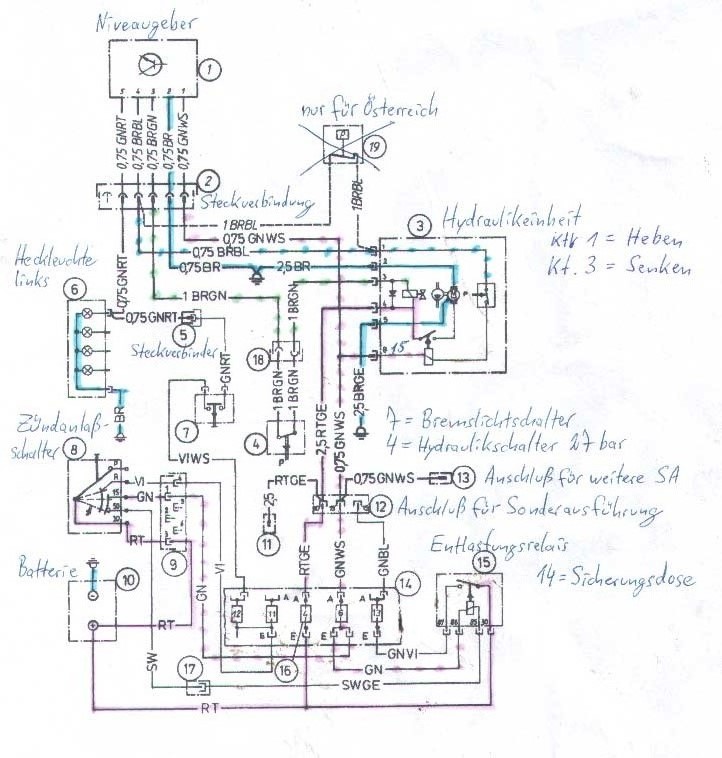 Niveaugeber
1
5 4 3 2 1
0,75 GNRT
0,75 BRBL
0,75 BRGN
0,75 BR
0,75 GNWS
nur für Österreich
P
19
2
Steckverbindung
1 BRBL
1BRBL
0,75 GNWS
0,75 BRBL
0,75BR
2,5 BR
3
Hydraulikeinheit
Ktkr 1 = Heben
Kt. 3 = Senken
1
2
3
4
5
8
15
P
Heckleuchte
links
6
0,75GNRT
0,75 GNRT
5
Steckverbinder
1 BRGN
1 BRGN
18
GNRT
BR
7
4
P
1BRGN
1BRGN
2,5RTGE
0,75 GNWS
2,5 BRGE
7 = Bremslichtschalter
4 = Hydraulikschalter 27 bar
Zündanlaß-
schalter
8
P
R
15
50
30
VI
GN
RT
VIWS
9
RTGE
0,75 GNWS
13
Anschluß für weitere SA
2,5
11
12
Anschluß für Sonderausführung
Batterie
10
RT
GN
VI
RTGE
GNWS
GNBL
14
Entlastungsrelais
15
14 = Sicherungsdose
A A A
12 11 4 6 13
E E E E
87 86 85 30
16
GNVI
GN
SW
17
SWGE
RT